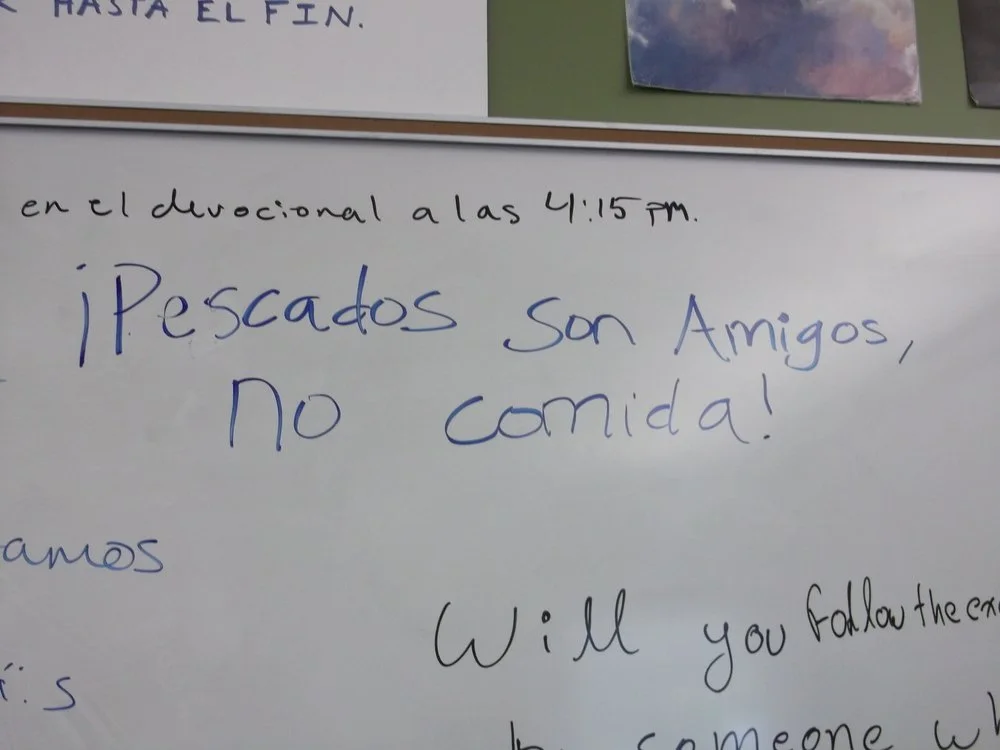 HASTA EL FIN.
en el devocional a las 4:15 PM.
¡Pescados son Amigos,
no comida!
amos
Will you follow the
someone